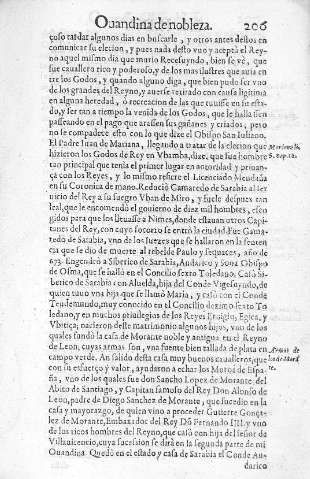 Ouandina de nobleza. 206
çoso tardar algunos dias en buscarle, y otros antes destos en
comunicar su elecion, y pues nada desto vuo y aceptò el Rey-
no aquel mismo dia que murio Recesuyndo, bien se vè, que
fue cauallero rico y poderoso, y de los mas ilustres que auia en
tre los Godos, y quando alguno diga, que bien pudo ser vno
de los grandes del Reyno, y auerse retirado con causa ligitima
en alguna heredad, ò recreacion de las que tuuiesse en su esta-
do, y ser tan a tiempo la venida de los Godos, que le hallassen
passeando en el pago que arassen sus gañanes y criados, pero
no se compadece esto con lo que dize el Obispo San Juliano.
El Padre Iuan de Mariana, llegando a tratar de la elecion que
hizieron los Godos de Rey en Vbamba, dize, que fue hombre
tan principal que tenia el primer lugar en autoridad y priuan-
çã con los Reyes, y lo mismo refiere el Licenciado Mendaña
en su Coronica de mano. Reduciò Gamaredo de Sarabia al ser
uicio del Rey a su suegro Vban de Miro, y fuele despues tan
leal, que le encomendò el gouierno de diez mil hombres, esco
gidos para que los lleuasse a Nimes, donde estauan otros Capi-
tanes del Rey, con cuyo socorro se entrò la ciudad. Fue Gama-
redo de Sarabia, vno de los juezes que se hallaron en la senten
cia que se dio de muerte al rebelde Paulo y sequaces, año de
673. Engendrò a Siberico de Sarabia, Andarico y Sona Obispo
de Osma, que se hallò en el Concilio sexto Toledano. Casò Si-
berico de Sarabia con Aluelda, hija del Conde Vigesoyndo, de
quien tuuo vna hija que se llamò Maria, y casò con el Conde
Teudemundo, muy conocido en el Concilio dezimo sexto To
ledano, y en muchos priuilegios de los Reyes Eruigio, Egica, y
Vbitiça; nacieron deste matrimonio algunos hijos, vno de los
quales fundò la casa de Morante noble y antigua en el Reyno
de Leon, cuyas armas son, vna fuente bien tallada de plata en
campo verde. An salido desta casa muy buenos caualleros, que
con su esfuerço y valor, ayudaron a echar los Moros de Espa-
ña, vno de los quales fue don Sancho Lopez de Morante del
Abito de Santiago, y Capitan famoso del Rey Don Alonso de
Leon, padre de Diego Sanchez de Morante, que sucedio en la
casa y mayorazgo, de quien vino a proceder Gutierre Gonça-
lez de Morante, Embaxador del Rey Dõ Fernando IIII. y vno
de los ricos hombres del Reyno, que casò con hija del señor de
Villauicencio, cuya sucession se dirà en la segunda parte de mi
Ouandina. Quedò en el estado y casa de Sarabia el Conde An-
darico